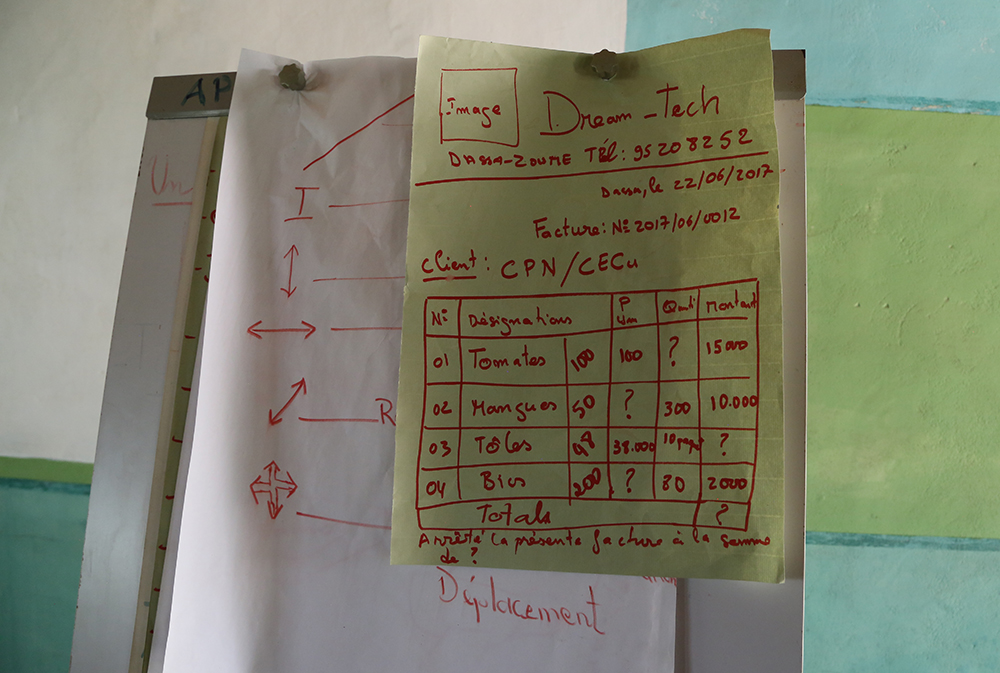 AP
Un
I
R
Déplacement
Image
Dream-Tech
DASSA-ZOUME Tél: 95208252
Dassa, le 22/06/2017
Facture: N° 2017/06/0012
Client: CPN/CECu
N° Désignations P Um Quati Montant
01 Tomates 100 100 ? 15000
02 Mangues 50 ? 300 10.000
03 Tôles 38.000 ?
04 Bics 200 ? 80 2000
Totals ?
Arrêté la présente facture à la somme
de ?